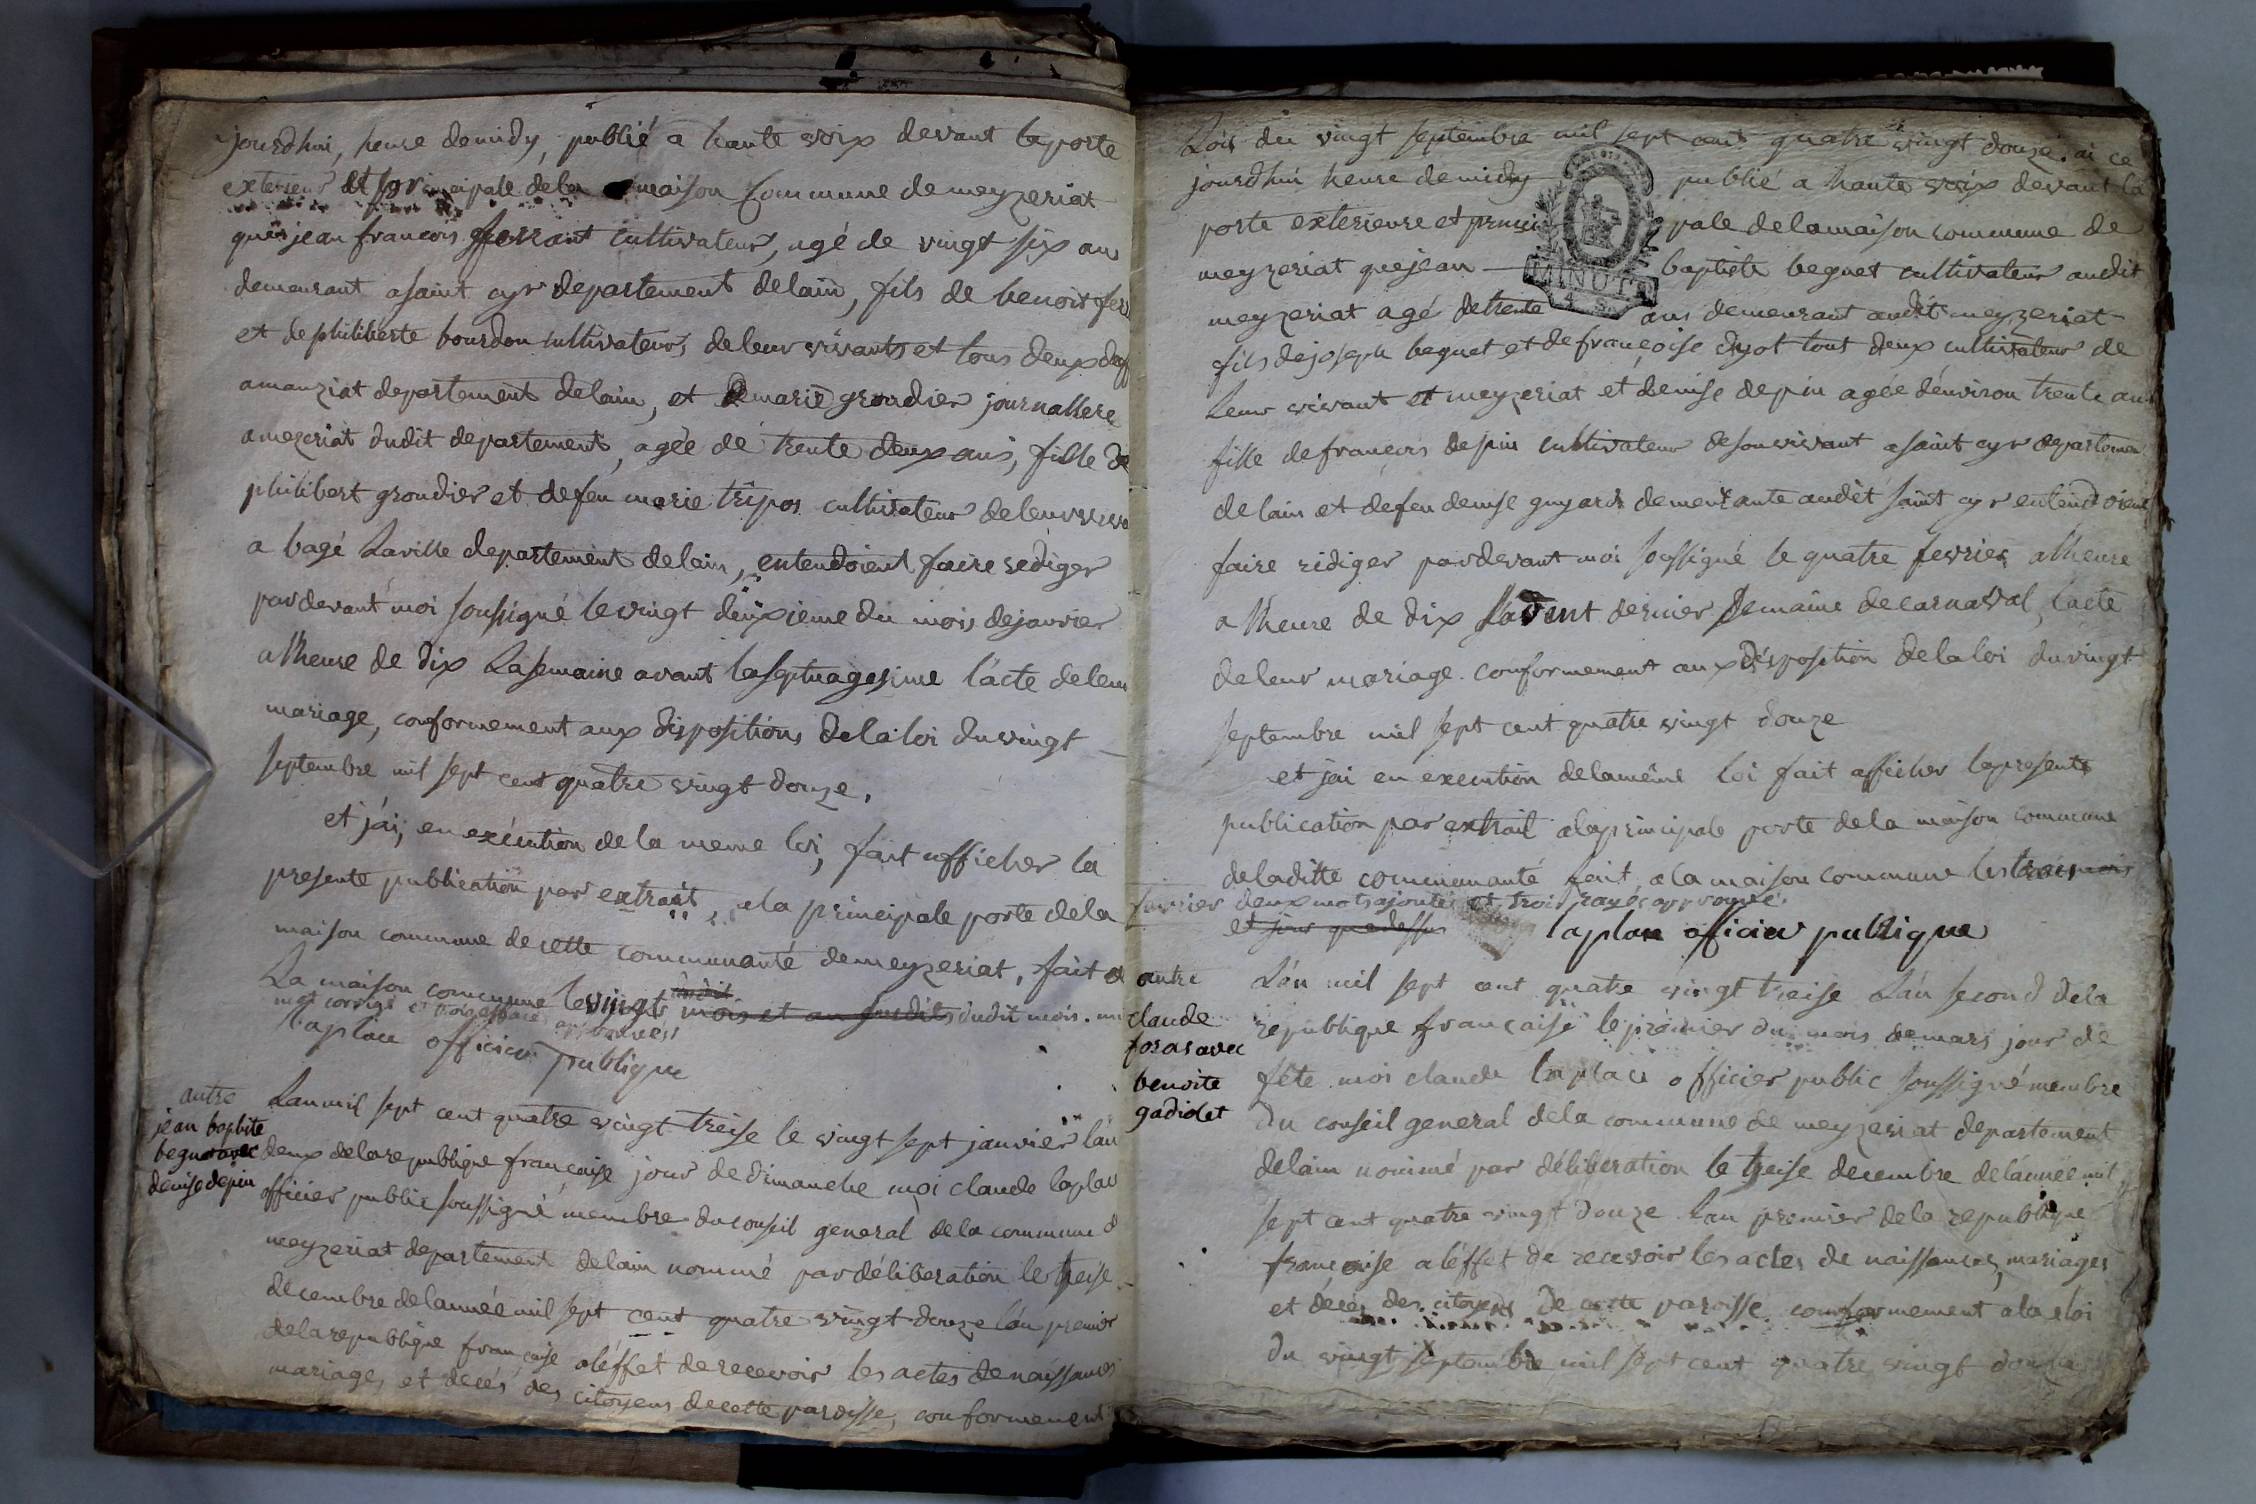 jourdhui, heure demidy, publié a haute voix devant laporte
exterieur et principale dela maison commune de meyzeriat
que jean francois ferrant cultivateur, agé de vingt six ans
demeurant asaint cyr departement delain, fils de benoit
et de philiberte bourdon cultivateur, deleur vivants et tous deux
amanziat departement delain, et de marie grondier journallere
amezeriat dudit departement, agée de trente deux ans, fille de
philibert grondier et defeu marie tripos cultivateur deleur
a bagé Laville departement delain, entendoient faire rediger
pardevant moi soussigné levingt deuxieme du mois dejanvier
a lheure de dix Lasemaine avant laseptuagesime l'acte deleur
mariage, conformement aux dispositions dela loi duvingt
septembre mil sept cent quatre vingt douze.
et j'ai, en exécution de la meme loi, fait afficher la
presente publication par extrait, ala principale porte dela
maison commune de cette communauté demeyzeriat, fait a
La maison commune levingt mois et an susdits dudit mois.
mot corrigé et approuvés
laplace officier publique
autre
jean baptite
beguet avec
denise depin
Lanmil sept cent quatre vingt treise le vingt sept janvier l'an
deux delarepublique française jour de dimanche moi claude laplace
officier public soussigné membre duconseil general dela commune d
meyzeriat departement delain nommé par déliberation le treise
decembre delannée mil sept cent quatre vingt douze l'an premier
delarepublique française aléffet derecevoir les actes denaissances
mariages et decés des citoyens decette paroisse, conformement
Lois du vingt septembre mil sept cent quatre vingt douze. ai ce
jourdhui heure demidy publié a haute voix devant la
porte exterieure et principale delamaison commune de
meyzeriat quejean baptiste beguet cultivateur audit
MINUTE
4. S.
meyzeriat agé detrente ans demeurant audit meyzeriat
fils dejoseph beguet et defrançoise dyot tout deux cultivateur de
Leur vivant et meyzeriat et denise depin agée d'environ trente ans
fille defrançois depin cultivateur desonvivant asaint cyr departemen
delain et defeu denise guyard demeurante audit saint cyr entendoient
faire rediger pardevant moi soussigné le quatre fevrier alheure
a lheure de dix lavent dernier semaine decarnaval, l'acte
deleur mariage. conformement aux disposition delaloi duvingt
septembre mil sept cent quatre vingt douze
et jai en execution delamême loi fait afficher lapresente
publication par extrait alaprincipale porte dela maison commune
deladitte communauté fait, a la maison commune les trois mois
fevrier deux mots ajoutés et trois rayés approuvé
et jour quedessus laplace officier publique
autre
claude
foras avec
benoite
gadiolet
L'an mil sept cent quatre vingt treise L'an second dela
république française le premier du mois demars jour de
fête moi claude laplace officier public soussigné membre
du conseil general dela commune de meyzeriat departement
delain nommé par déliberation le treise decembre del'année mil
sept cent quatre vingt douze Lan premier dela republique
française aléffet de recevoir les actes de naissances, mariages
et decés des citoyens de cette paroisse conformement ala loi
du vingt septembre mil sept cent quatre vingt douze